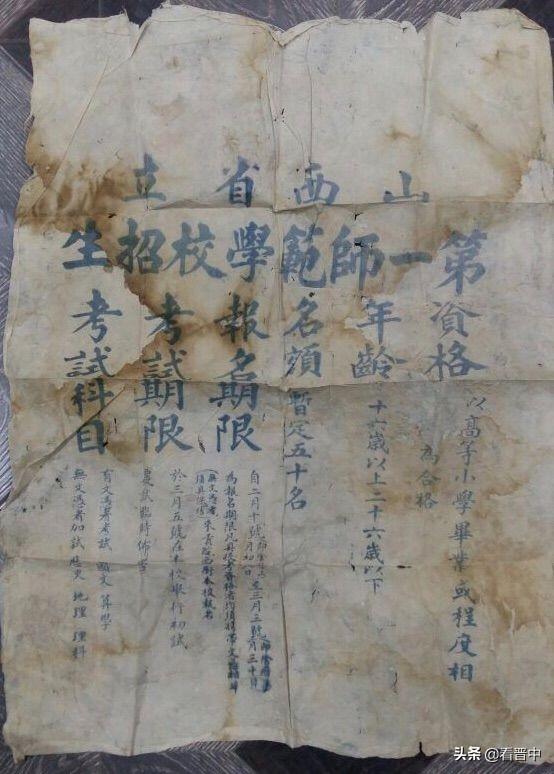 山西省立
第一師範學校招生
資格
以高等小學畢業或程度相
為合格
年齡
十六歲以上二十六歲以下
名額
暫定五十名
報名期限
自二月十號
至三月三號
為報名期限
考試期限
於三月五號在本校舉行初試
覆試臨時佈告
考試科目
有文憑者考試 國文 算學
無文憑者加試 歷史 地理 理科
头条 @看晋中